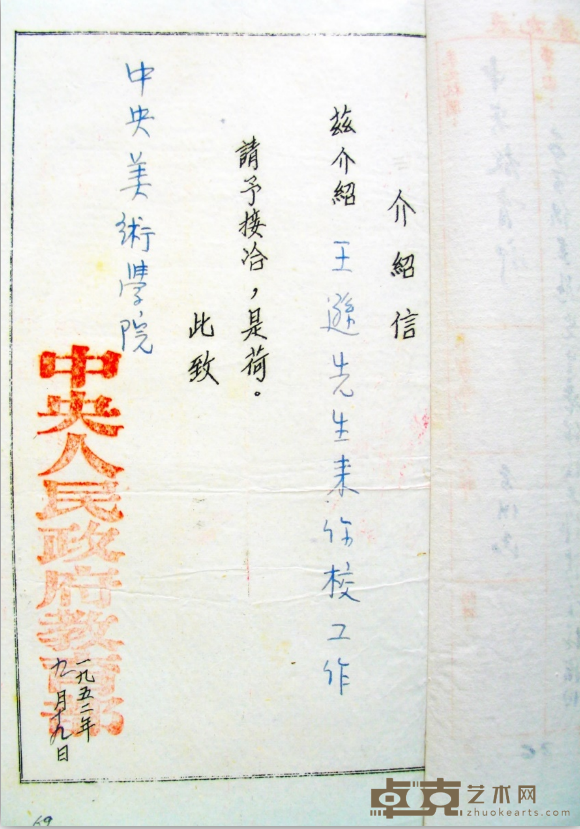 介紹信
茲介紹 王遜先生来你校工作
請予接洽，是荷。
此致
中央美術學院
中央人民政府教育部
一九五二年
九月十九日
69
卓克艺术网
zhuokearts.com